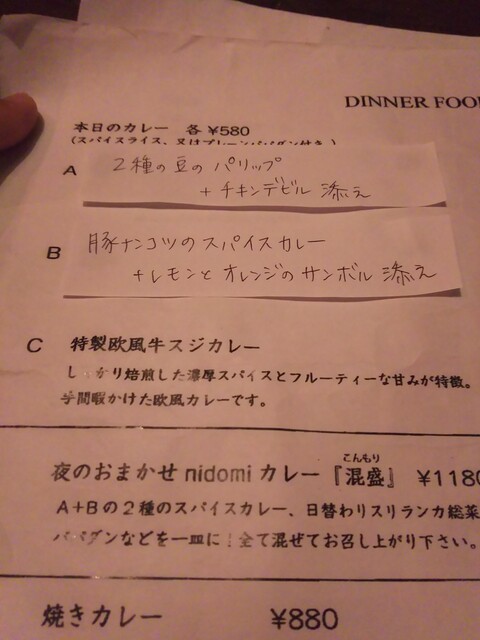 DINNER FOO
本日のカレー 各 ¥580
(スパイスライス、又はプレーンパパダン付き)
A 2種の豆のパリップ
+チキンデビル 添え
B 豚ナンコツのスパイスカレー
+レモンとオレンジのサンボル 添え
C 特製欧風牛スジカレー
しっかり焙煎した濃厚スパイスとフルーティーな甘みが特徴。
手間暇かけた欧風カレーです。
こんもり
夜のおまかせnidomiカレー『混盛』 ¥1180
A+Bの2種のスパイスカレー、日替わりスリランカ総菜
パパダンなどを一皿に!全て混ぜてお召し上がり下さい。
焼きカレー ¥880